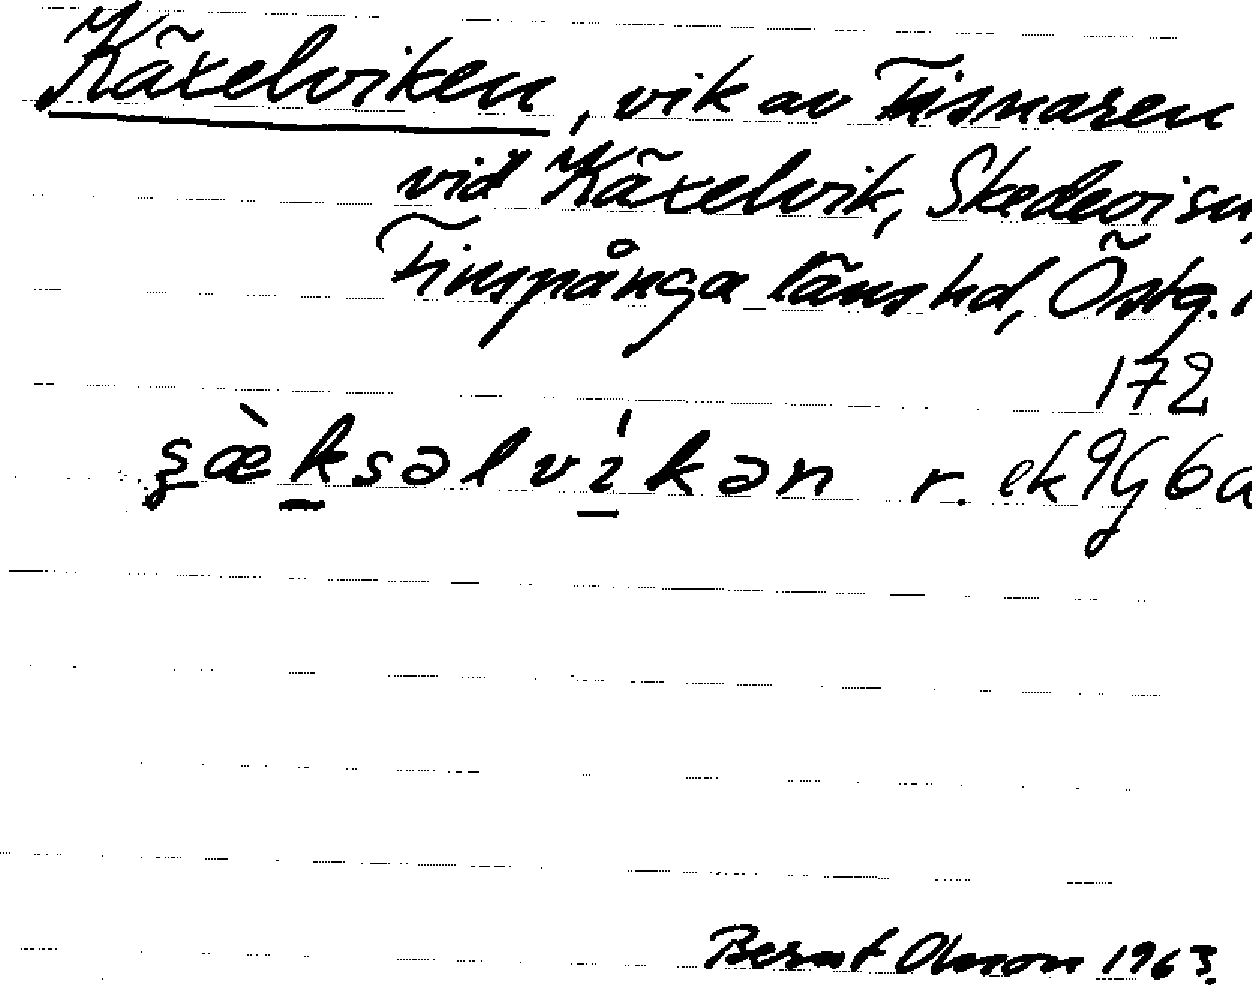 Käxelviken, vik av Tisnaren
vid Käxelvik, Skedevi sn,
Finspånga läns hd, Östg.
172
ʂæ̀ksəlvíkən r. ek 9G6a
Bernt Olsson 1963.